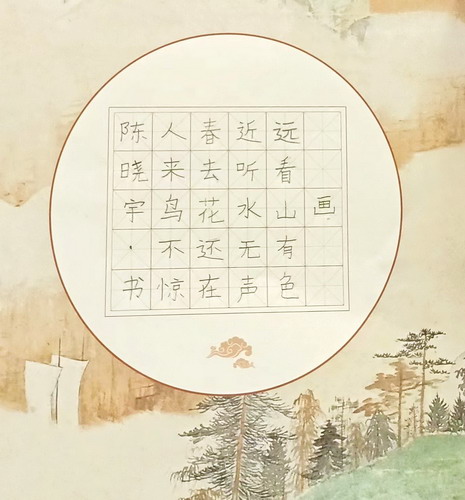 画
远看山有色
近听水无声
春去花还在
人来鸟不惊
陈晓宇·书